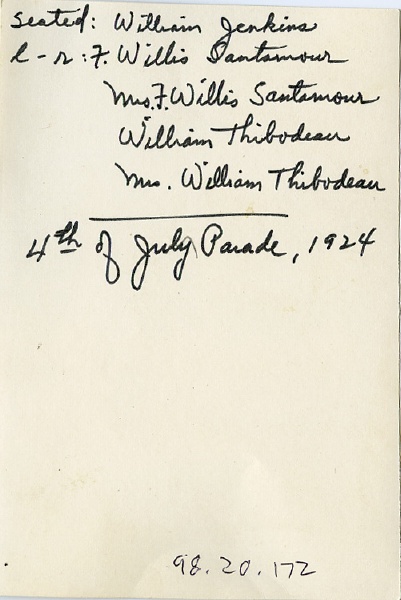 Seated: William Jenkins
l-r: F. Willis Santamour
Mrs. F. Willis Santamour
William Thibodeau
Mrs. William Thibodeau
4th of July Parade, 1924
98.20.172